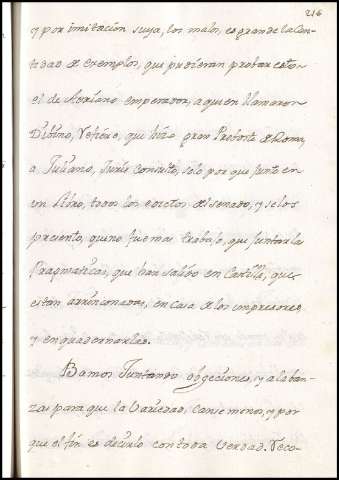 216
y por imitacion suya, los malos, es grande la Can-
tidad de exemplos, que pudieran probar esto
el de Adriano emperador, a quien llamaron
Divino, Vefiere, que hizo gran Preboste de Roma,
a Juliano, Juris Consulto, solo por que junto en
un libro, todos los edictos del senado, y se los
presento, que no fue mas trabajo, que juntar las
Pragmaticas, que han salido en Castilla, que
estan arrinconadas, en casa de los impresores
y enquadernarlas.
Bamos Juntando objeciones, y alaban-
zas para que la Variedad, canse menos, y por
que el fin es decirlo con toda Verdad. Veco-